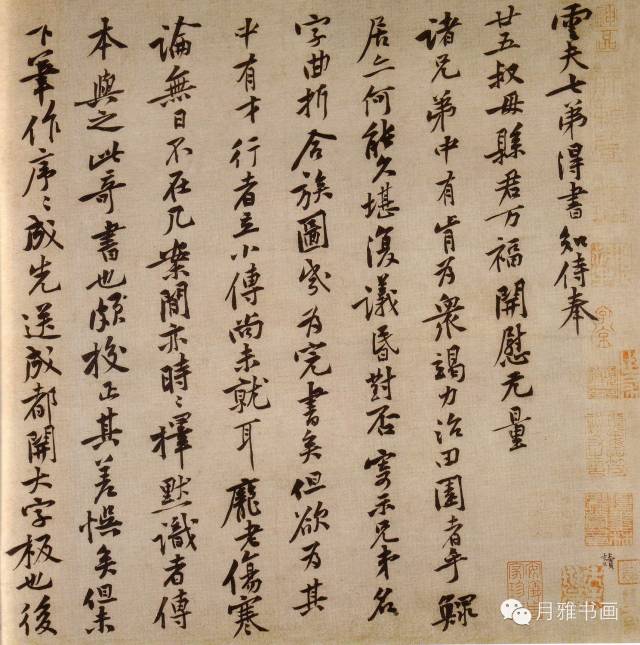 雲夫七弟得書知侍奉
廿五叔母縣君万福開慰无量
諸兄弟中有肯為衆竭力治田園者乎鰥
居亦何能久堪復議昏對否寄示兄弟名
字曲折合族圖歲為完書矣但欲為其
中有才行者立小傳尚未就耳龐老傷寒
論無日不在几案間亦時〻擇默識者傳
本與之此奇書也頗校正其差悮矣但未
下筆作序〻成先送成都開大字板也後
讀
月雅书画